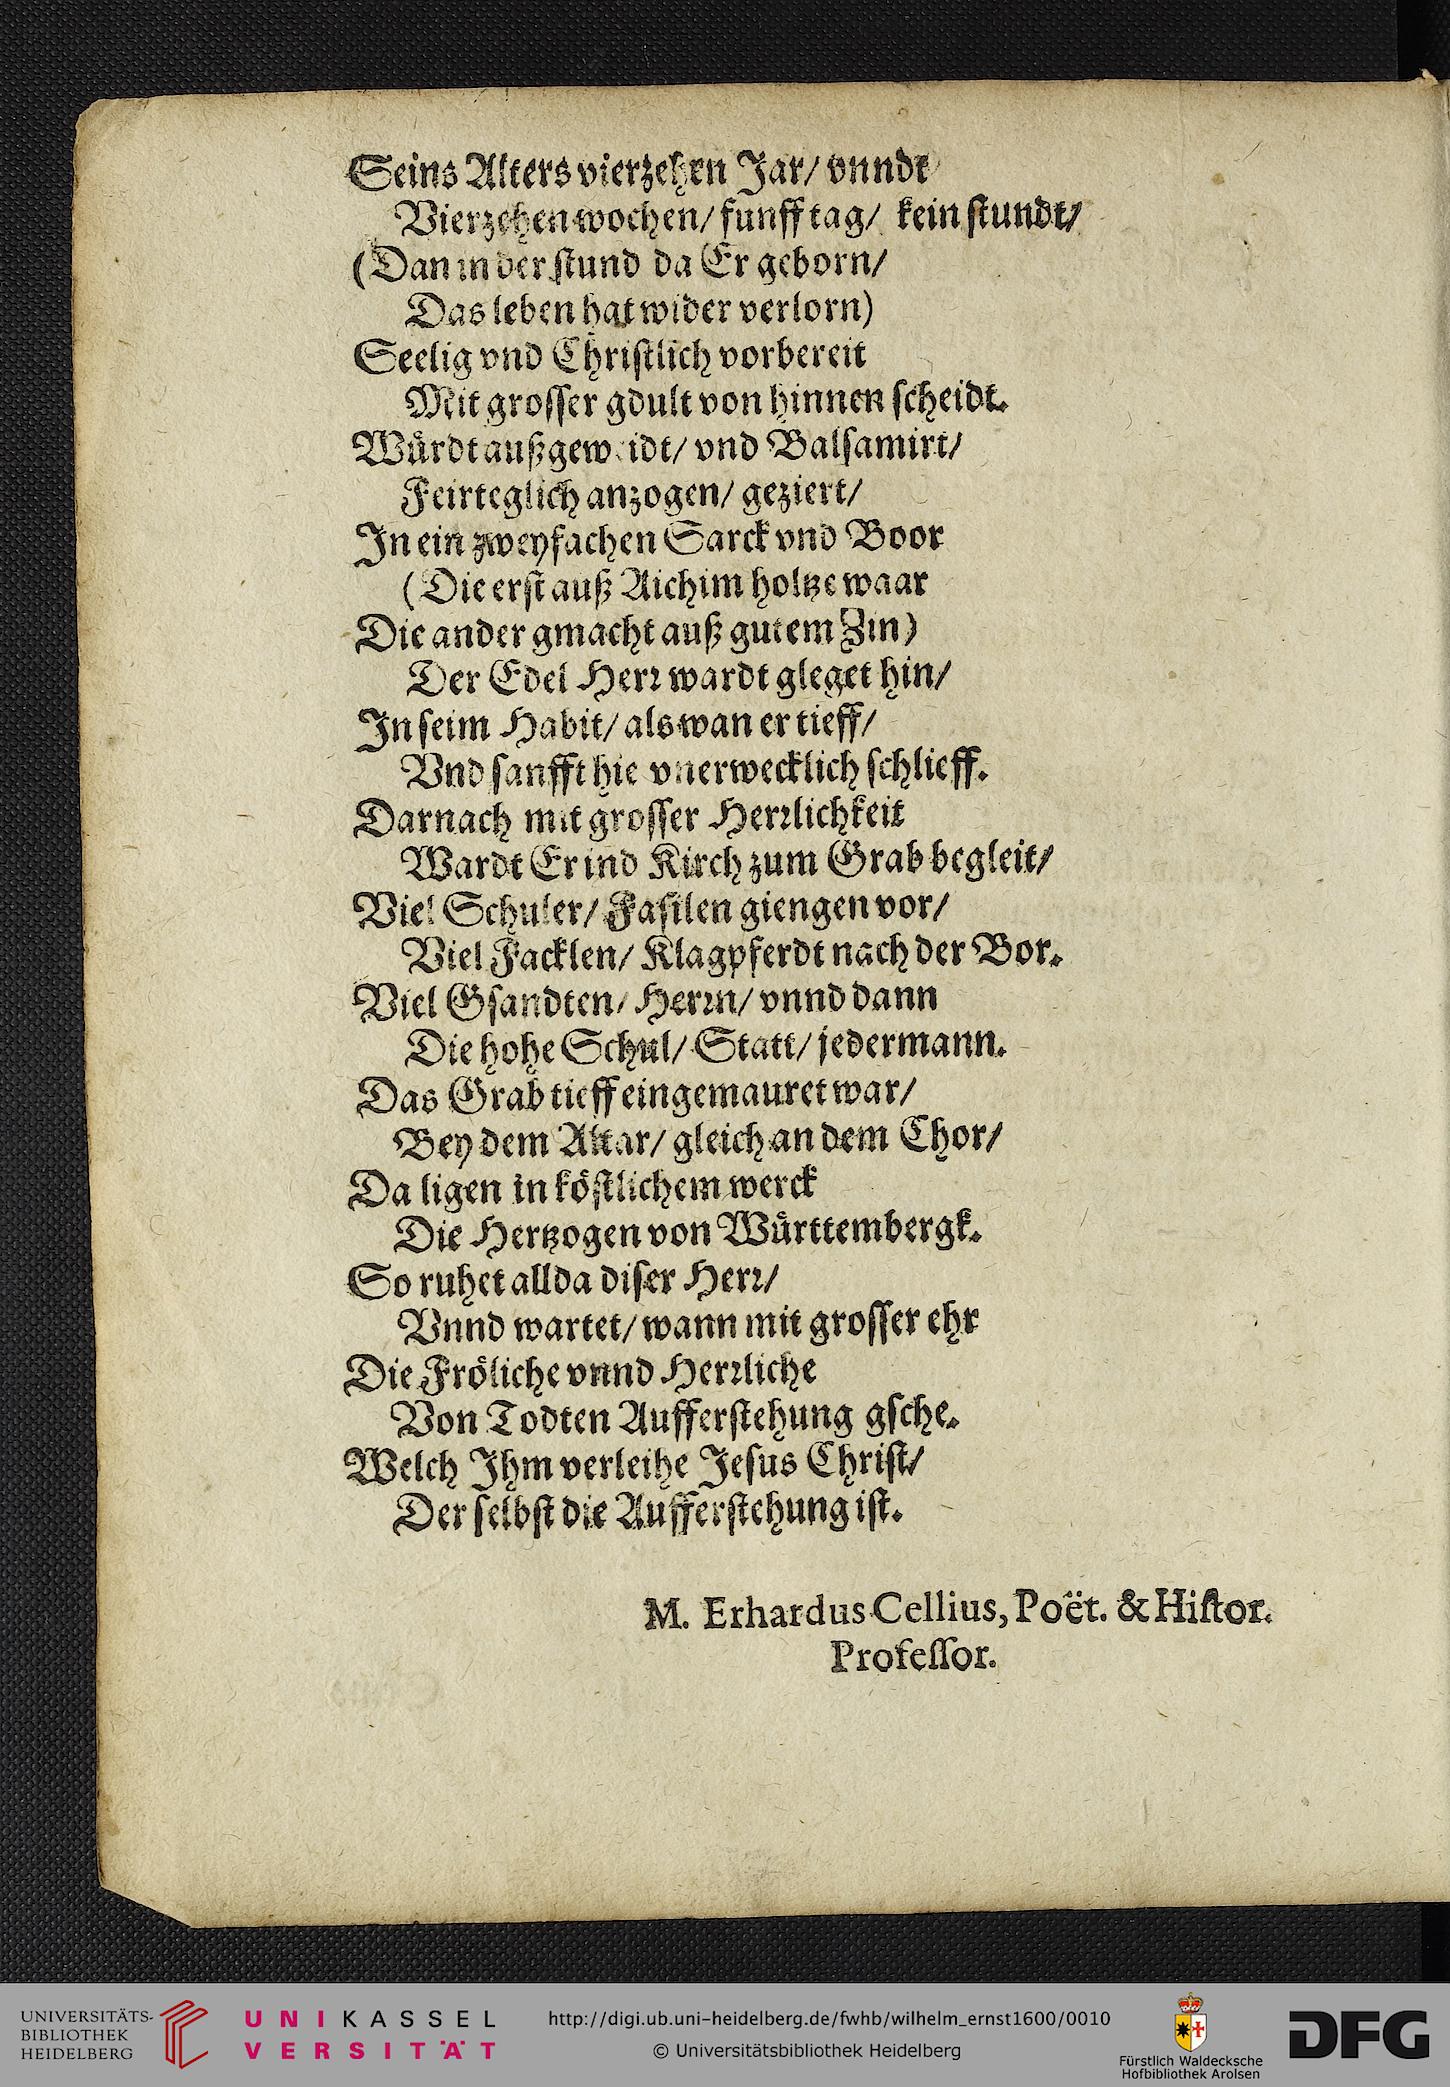 Seins Alters vierzehen Jar/ vnndt
Vierzehen wochen/ funff tag/ kein stundt/
(Dan in der stund da Er geborn/
Das leben hat wider verlorn)
Seelig vnd Christlich vorbereit
Mit grosser gdult von hinnen scheidt.
Würdt außgeweidt/ vnd Balsamirt/
Feirteglich anzogen/ geziert/
In ein zweyfachen Sarck vnd Boor
(Die erst auß Aichim holtze waar
Die ander gmacht auß gutem Zin)
Der Edel Herr wardt gleget hin/
In seim Habit/ als wan er tieff/
Vnd sanfft hie vnerwecklich schlieff.
Darnach mit grosser Herrlichkeit
Wardt Er ind Kirch zum Grab begleit/
Viel Schuler/ Fasilen giengen vor/
Viel Facklen/ Klagpferdt nach der Bor.
Viel Gsandten/ Herrn/ vnnd dann
Die hohe Schul/ Statt/ jedermann.
Das Grab tieff eingemauret war/
Bey dem Altar/ gleich an dem Chor/
Da ligen in köstlichem werck
Die Hertzogen von Württembergk.
So ruhet allda diser Herr/
Vnnd wartet/ wann mit grosser ehr
Die Fröliche vnnd Herrliche
Von Todten Aufferstehung gsche.
Welch Ihm verleihe Jesus Christ/
Der selbst die Aufferstehung ist.
M. Erhardus Cellius, Poët. & Histor.
Professor.
UNIVERSITÄTS-
BIBLIOTHEK
HEIDELBERG
UNIKASSEL
VERSITÄT
http://digi.ub.uni-heidelberg.de/fwhb/wilhelm_ernst1600/0010
© Universitätsbibliothek Heidelberg
Fürstlich Waldecksche
Hofbibliothek Arolsen
DFG